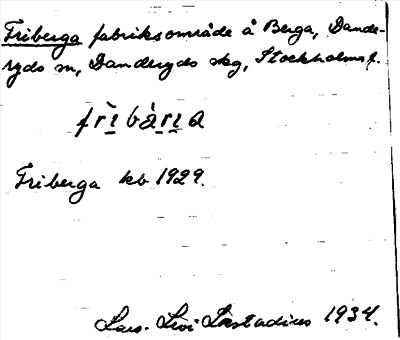 Friberga fabriksområde å Berga, Dande-
ryds sn, Danderyds skg, Stockholms l.
frìbàrıa
Friberga kb 1929.
Lars-Levi Læstadius 1934.